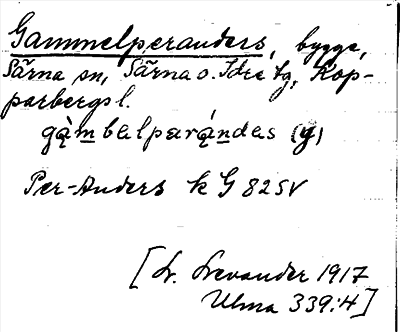 Gammelperanders, bygge,
Särna sn, Särna o. Idre tg, Kop-
parbergs l.
gàmbelparándas (y)
Per-Anders k G 825V
[Lr. Levander 1917
Ulma 339:4]